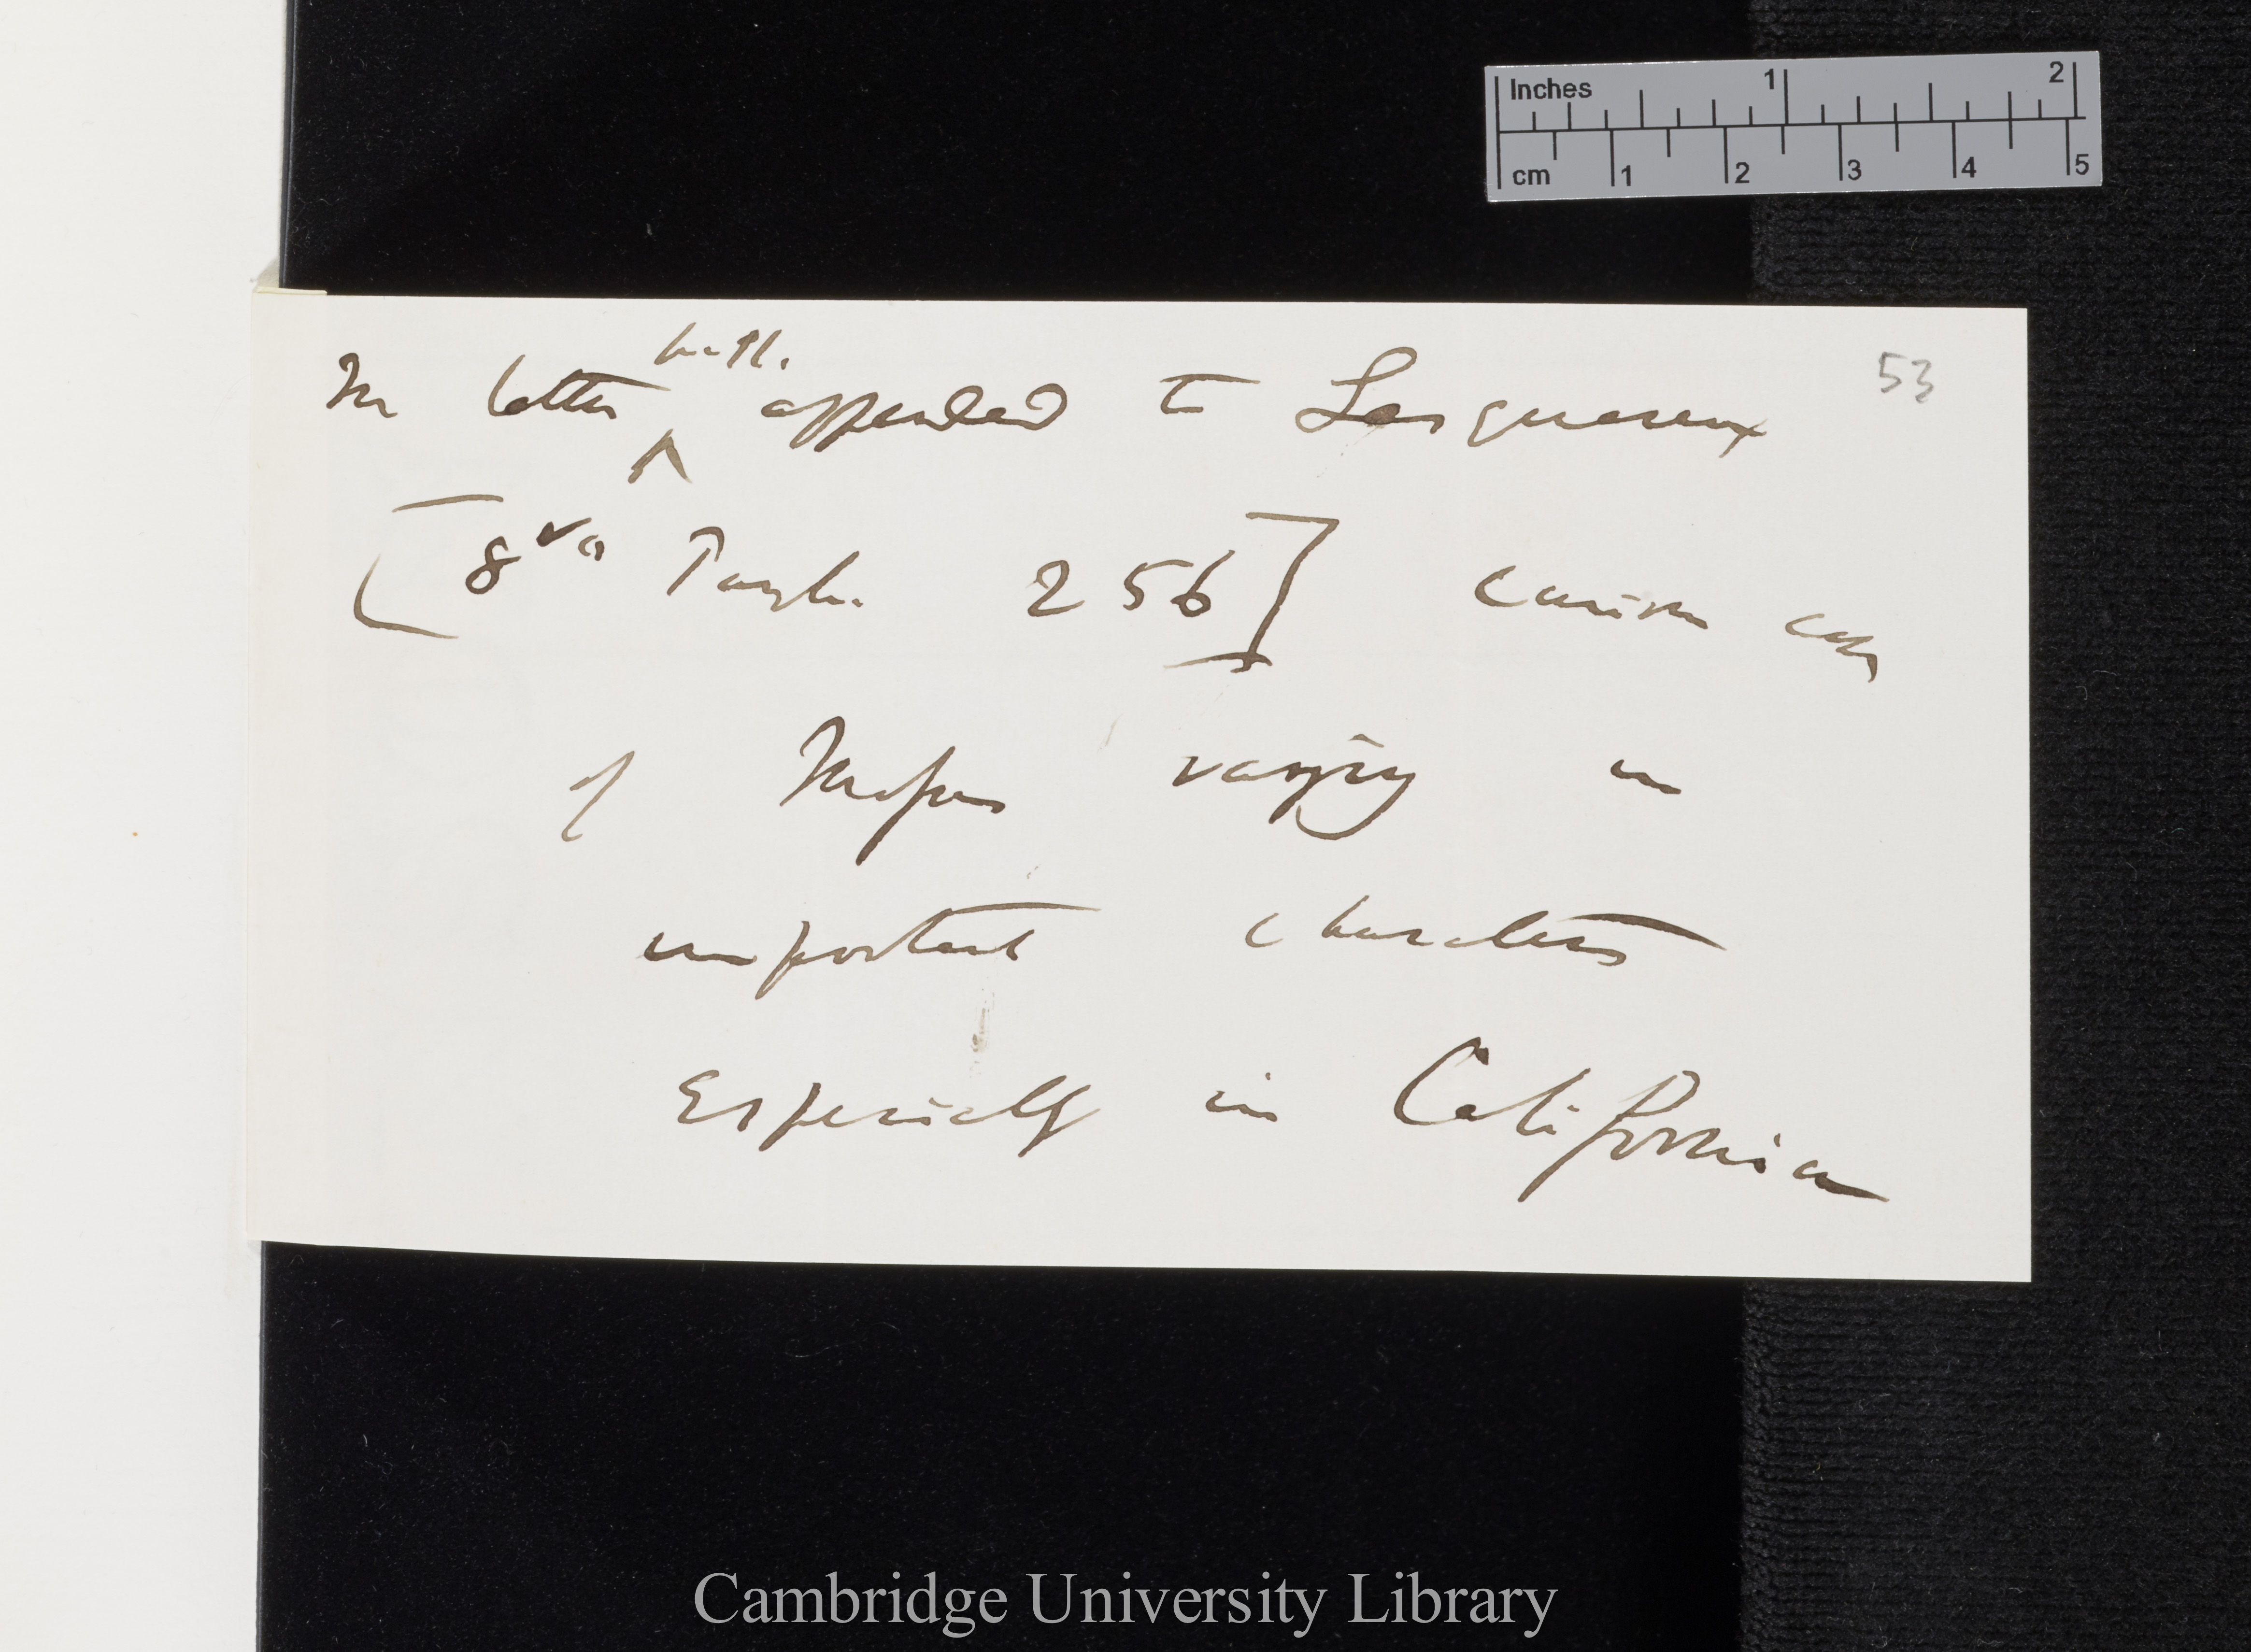 Inches 1 2
cm 1 2 3 4 5
53
In letter appended to Lesquereux
[8vo Pamph. 256] curious case
of Mosses varying in
important characters
especially in California
Cambridge University Library